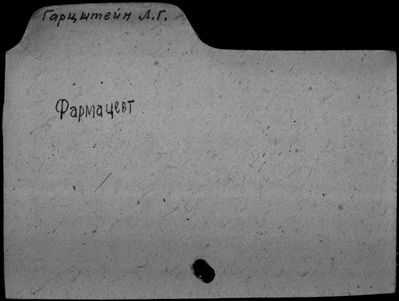 Гарцштейн Л.Г.
Фармацевт